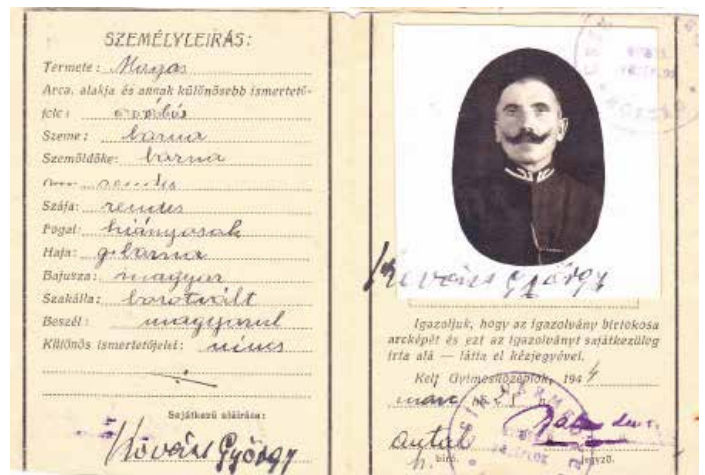 SZEMÉLYLEIRÁS:
Termete: Magas
Arca, alakja és annak különösebb ismertető-
jele:
Szeme: barna
Szemöldöke: barna
rendes
Szája: rendes
Fogai: hiányosak
Haja: g. barna
Bajusza: magyar
Szakálla: borotvált
Beszél: magyarul
Különös ismertetőjelei: nincs
Sajátkezű aláirása:
Kovács György
Kovács György
Igazoljuk, hogy az igazolvány birtokosa
arcképét és ezt az igazolványt sajátkezüleg
irta alá — látta el kézjegyével.
Kelt Gyimesközéplok, 1944
márc hó 21
Antal
h. biró. jegyző.